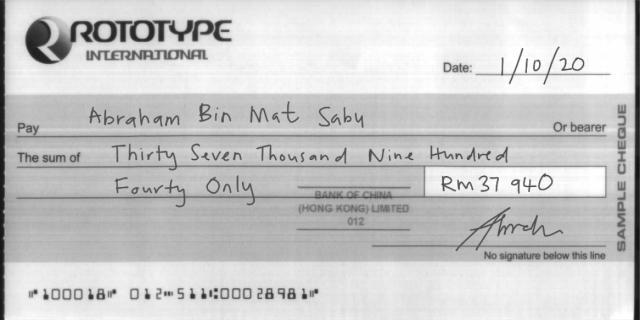 ROTOTYPE
INTERNATIONAL
Date: 1/10/20
Pay Abraham Bin Mat Saby Or bearer
The sum of Thirty Seven Thousand Nine Hundred
Fourty Only RM 37 940
BANK OF CHINA
(HONG KONG) LIMITED
012
No signature below this line
SAMPLE CHEQUE
⑈100018⑈ 012⑉511⑆00028981⑈